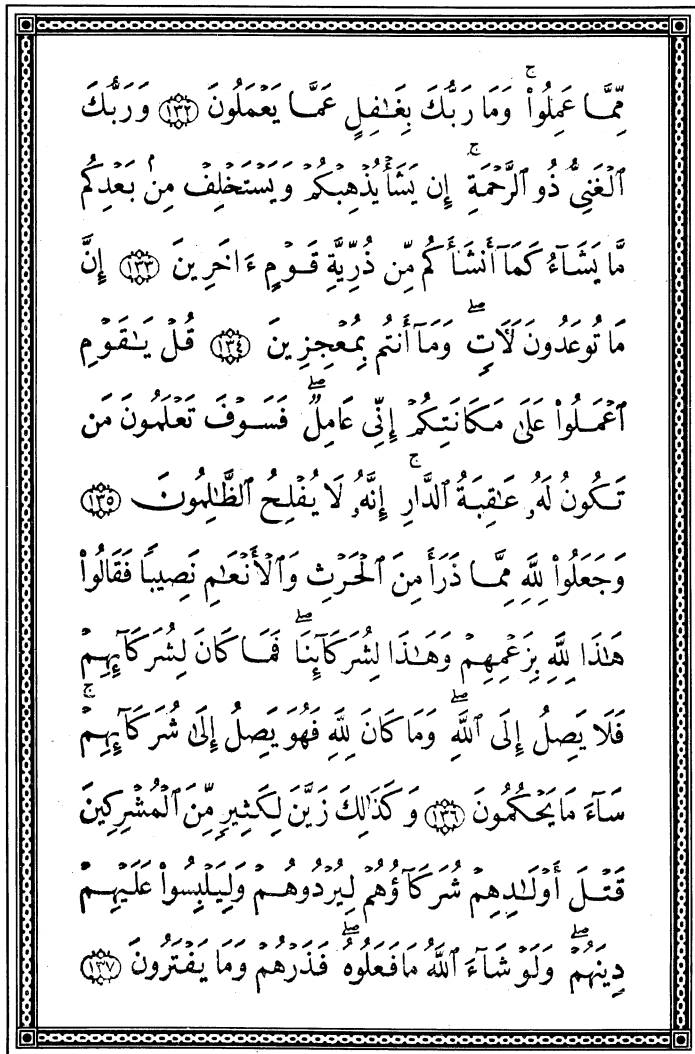 مِّمَّا عَمِلُوا۟ ۚ وَمَا رَبُّكَ بِغَـٰفِلٍ عَمَّا يَعْمَلُونَ ﴿١٣٢﴾ وَرَبُّكَ
ٱلْغَنِىُّ ذُو ٱلرَّحْمَةِ ۚ إِن يَشَأْ يُذْهِبْكُمْ وَيَسْتَخْلِفْ مِنۢ بَعْدِكُم
مَّا يَشَآءُ كَمَآ أَنشَأَكُم مِّن ذُرِّيَّةِ قَوْمٍ ءَاخَرِينَ ﴿١٣٣﴾ إِنَّ
مَا تُوعَدُونَ لَـَٔاتٍ ۖ وَمَآ أَنتُم بِمُعْجِزِينَ ﴿١٣٤﴾ قُلْ يَـٰقَوْمِ
ٱعْمَلُوا۟ عَلَىٰ مَكَانَتِكُمْ إِنِّى عَامِلٌ ۖ فَسَوْفَ تَعْلَمُونَ مَن
تَكُونُ لَهُۥ عَـٰقِبَةُ ٱلدَّارِ ۚ إِنَّهُۥ لَا يُفْلِحُ ٱلظَّـٰلِمُونَ ﴿١٣٥﴾
وَجَعَلُوا۟ لِلَّهِ مِمَّا ذَرَأَ مِنَ ٱلْحَرْثِ وَٱلْأَنْعَـٰمِ نَصِيبًا فَقَالُوا۟
هَـٰذَا لِلَّهِ بِزَعْمِهِمْ وَهَـٰذَا لِشُرَكَآئِنَا ۖ فَمَا كَانَ لِشُرَكَآئِهِمْ
فَلَا يَصِلُ إِلَى ٱللَّهِ ۖ وَمَا كَانَ لِلَّهِ فَهُوَ يَصِلُ إِلَىٰ شُرَكَآئِهِمْ ۗ
سَآءَ مَا يَحْكُمُونَ ﴿١٣٦﴾ وَكَذَٰلِكَ زَيَّنَ لِكَثِيرٍ مِّنَ ٱلْمُشْرِكِينَ
قَتْلَ أَوْلَـٰدِهِمْ شُرَكَآؤُهُمْ لِيُرْدُوهُمْ وَلِيَلْبِسُوا۟ عَلَيْهِمْ
دِينَهُمْ ۖ وَلَوْ شَآءَ ٱللَّهُ مَا فَعَلُوهُ ۖ فَذَرْهُمْ وَمَا يَفْتَرُونَ ﴿١٣٧﴾